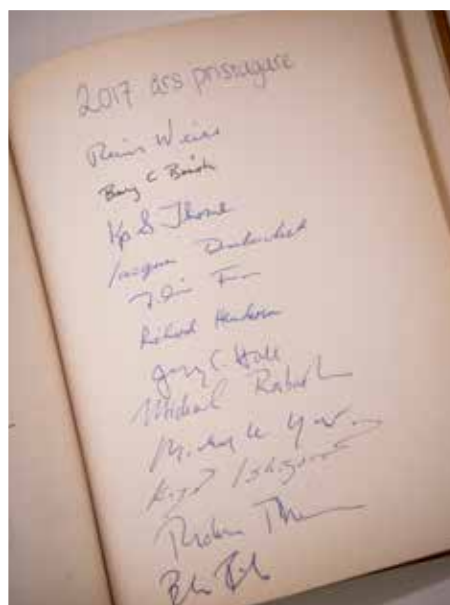 2017 års pristagare
Rainer Weiss
Barry C Barish
Kip S Thorne
Jacques Dubochet
Richard Henderson
Jeffrey C. Hall
Michael Rosbash
Michael W. Young
Kazuo Ishiguro
Richard Thaler